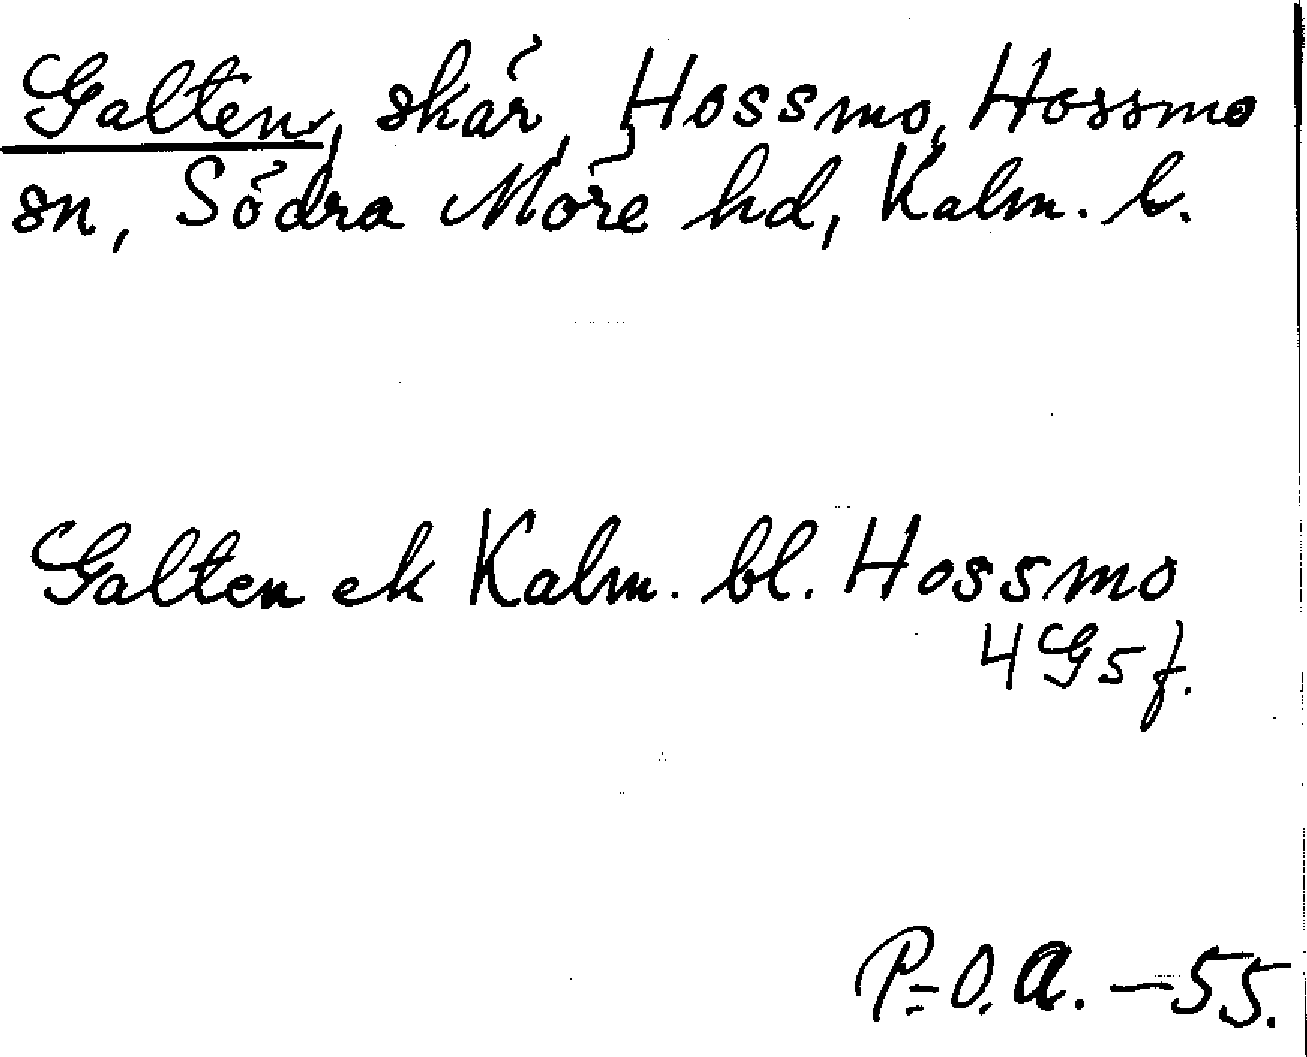 Galten, skär, Hossmo, Hossmo
sn, Södra Möre hd, Kalm. l.
Galten ek Kalm. bl. Hossmo
4G5f.
P.-O.A. -55.